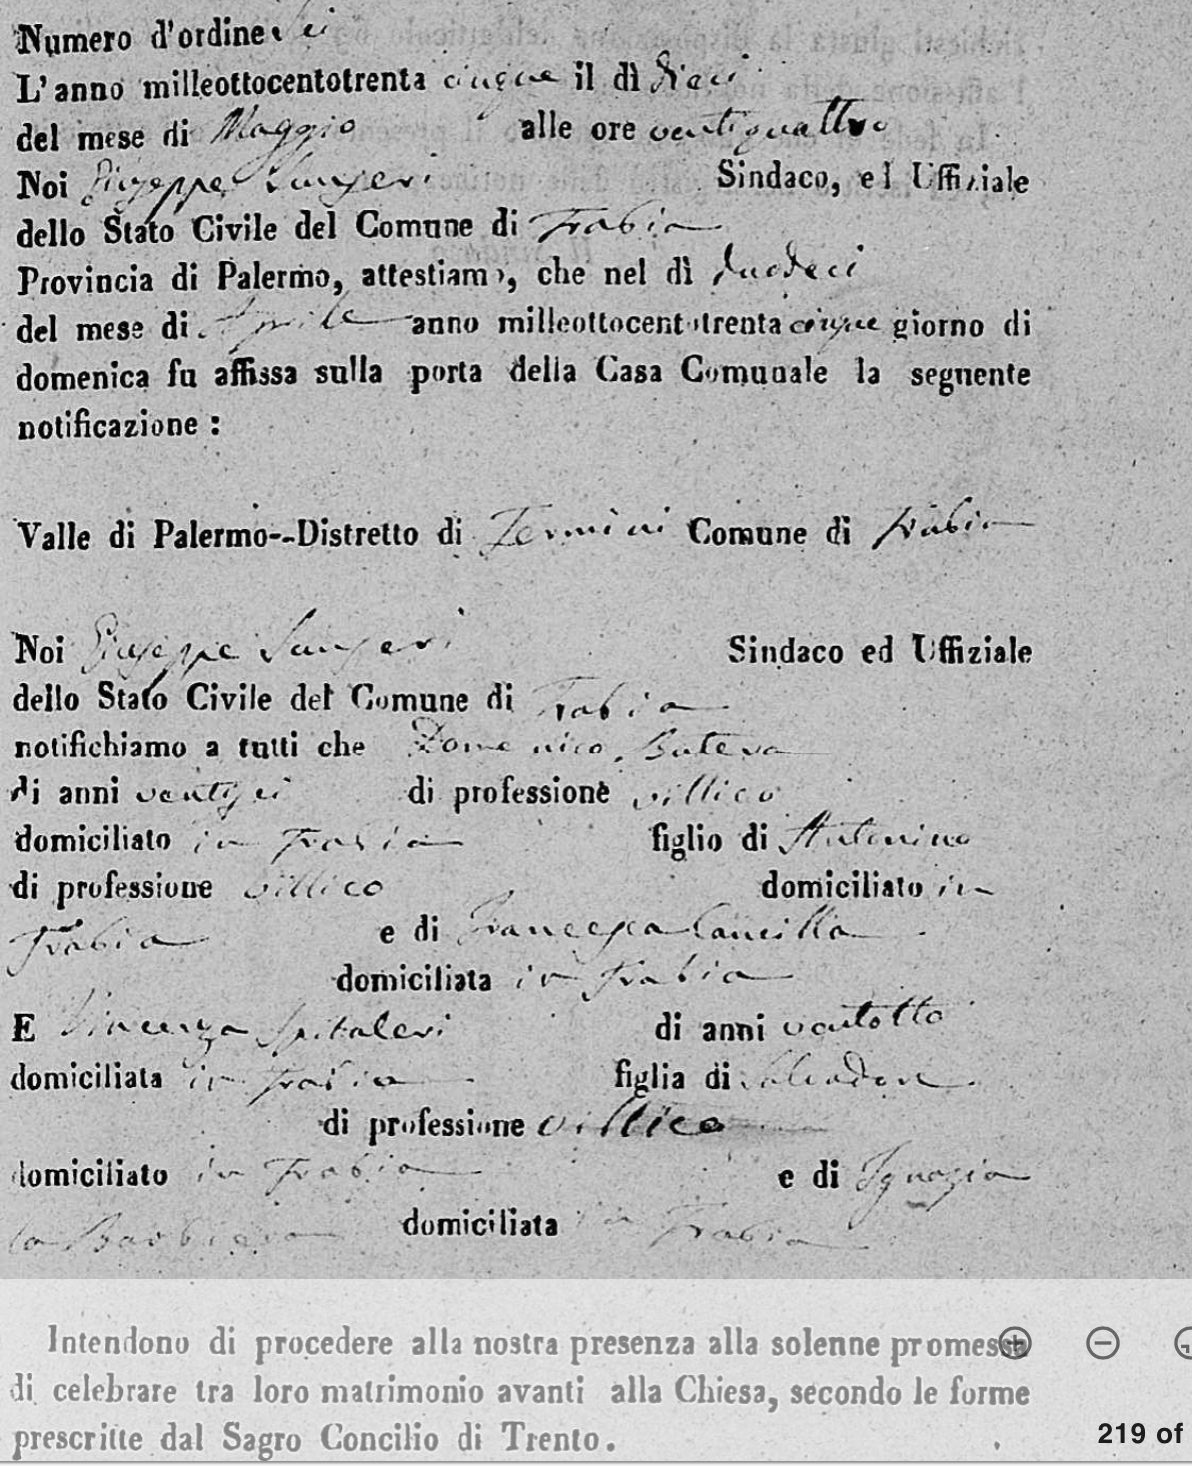 Numero d'ordine sei
L'anno milleottocentotrenta cinque il dì dieci
del mese di Maggio alle ore ventiquattro
Noi Giuseppe Sangeri Sindaco, ed Uffiziale
dello Stato Civile del Comune di Trabia
Provincia di Palermo, attestiamo, che nel dì duodeci
del mese di Aprile anno milleottocentotrenta cinque giorno di
domenica fu affissa sulla porta della Casa Comunale la seguente
notificazione :
Valle di Palermo--Distretto di Termini Comune di Trabia
Noi Giuseppe Sangeri Sindaco ed Uffiziale
dello Stato Civile del Comune di Trabia
notifichiamo a tutti che Domenico Butera
di anni ventisei di professione villico
domiciliato in Trabia figlio di Antonino
di professione villico domiciliato in
Trabia e di Francesca Cancilla
domiciliata in Trabia
E Vincenza Spitaleri di anni ventotto
domiciliata in Trabia figlia di Salvadore
di professione villico
domiciliato in Trabia e di Ignazia
la Barbiera domiciliata in Trabia
Intendono di procedere alla nostra presenza alla solenne promessa
di celebrare tra loro matrimonio avanti alla Chiesa, secondo le forme
prescritte dal Sagro Concilio di Trento.
219 of